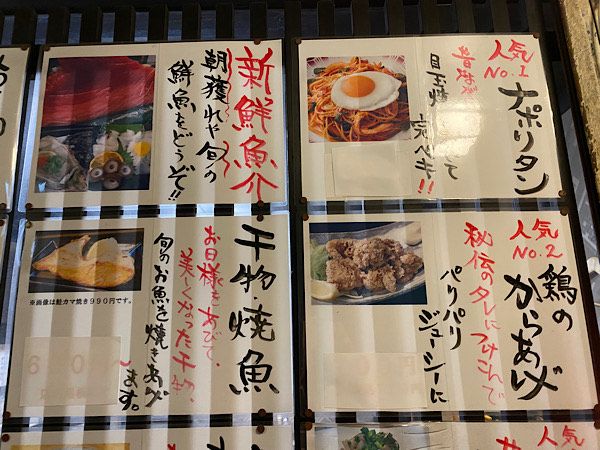 新鮮魚介
朝獲れや旬の
鮮魚をどうぞ!!
人気
No.1
ナポリタン
昔ながら
目玉焼
て
完ペキ!!
干物・焼魚
お日様をあびて、
美しくなった干物、
旬のお魚を焼きあげ
ます。
※画像は鮭カマ焼き990円です。
人気
No.2
鶏の
からあげ
秘伝のタレにつけこんで
パリパリ
ジューシーに